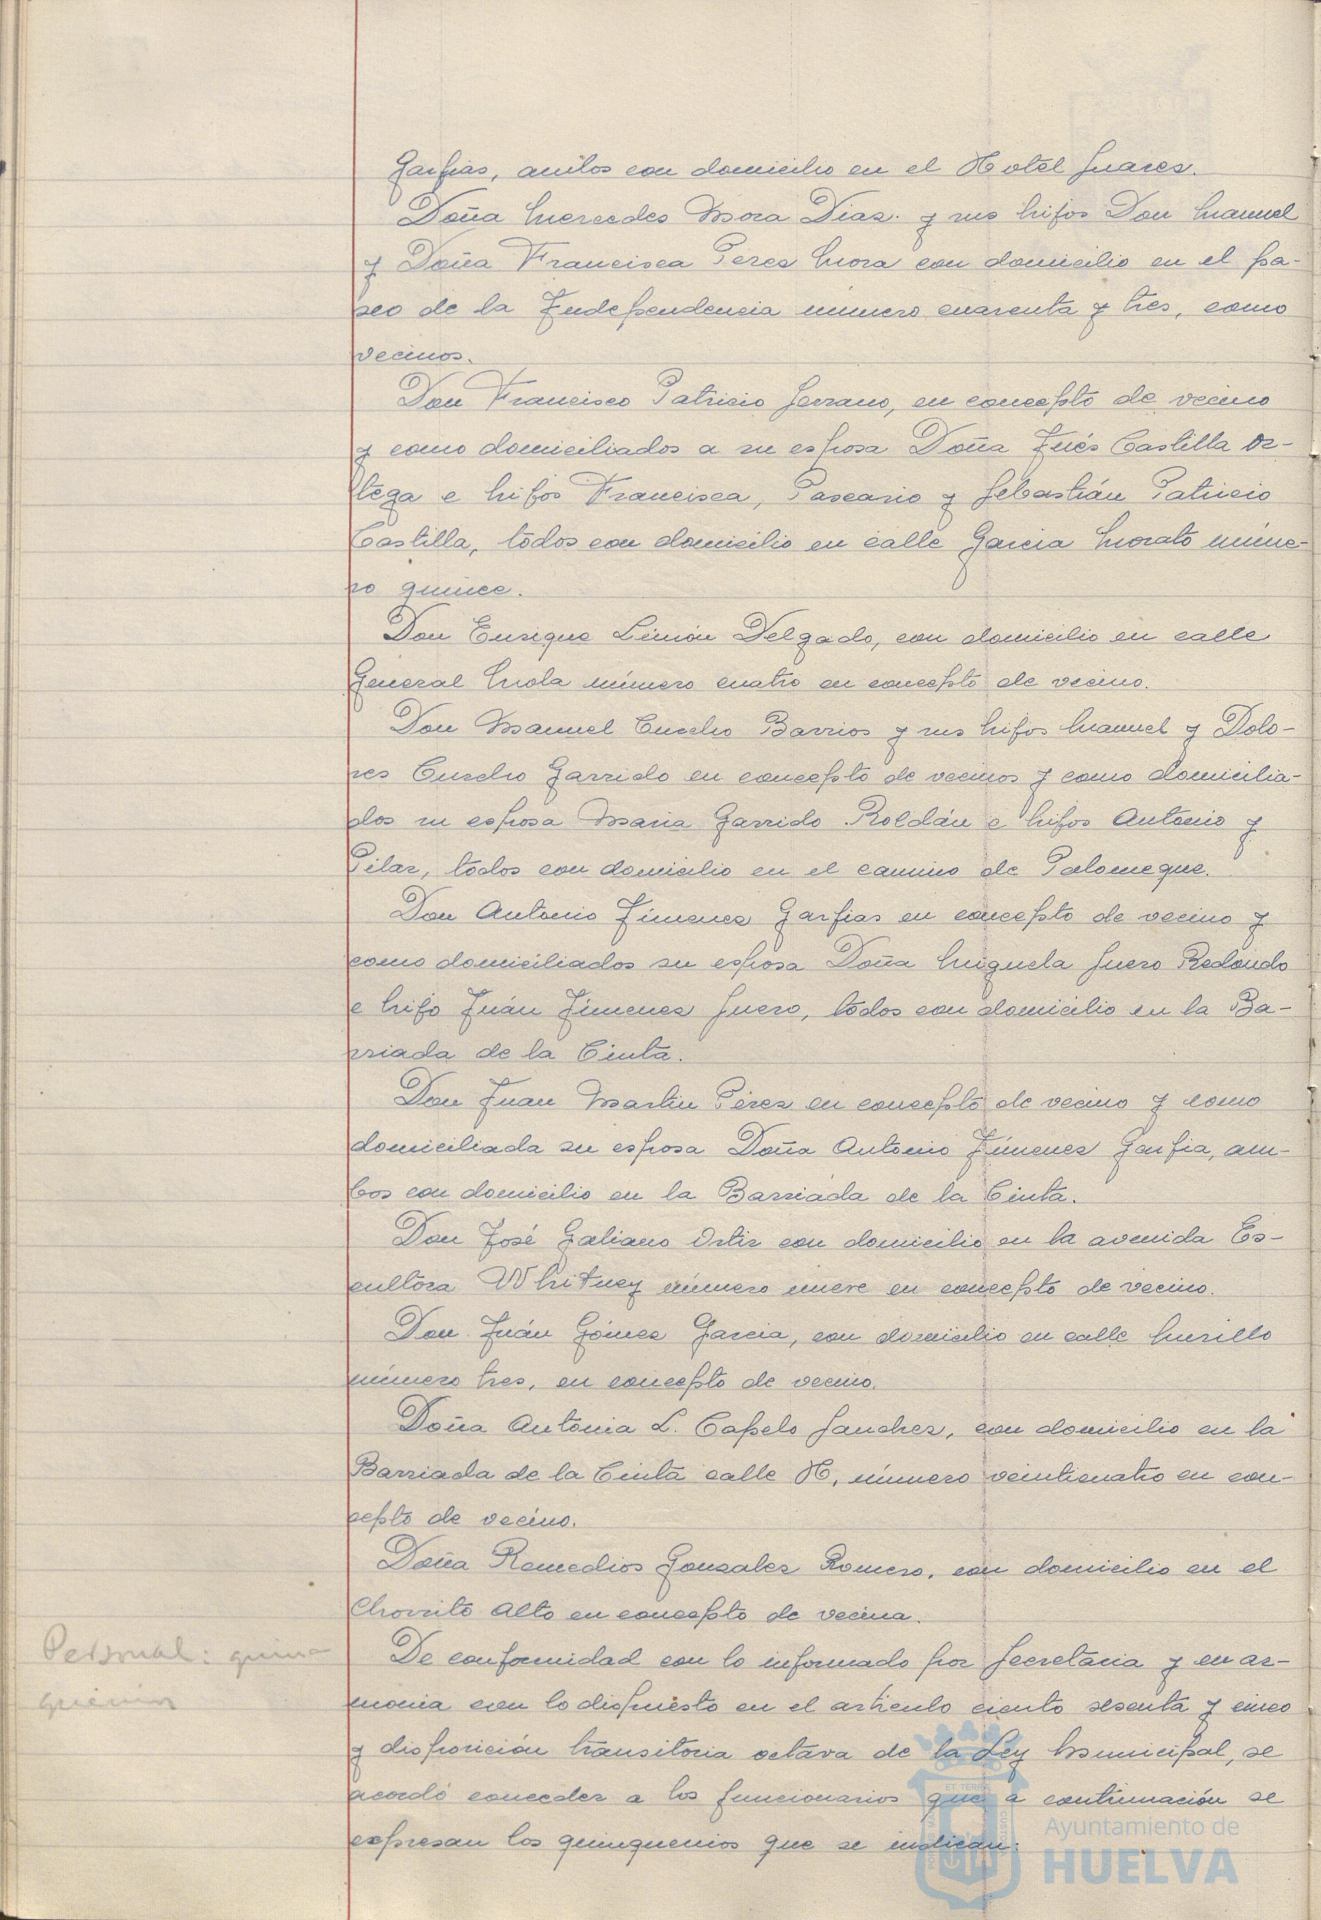 Garfias, ambos con domicilio en el Hotel Suarez.
Doña Mercedes Mora Diaz y sus hijos Don Manuel
y Doña Francisca Perez Mora con domicilio en el pa-
seo de la Independencia número cuarenta y tres, como
vecinos.
Don Francisco Patricio Serrano, en concepto de vecino
y como domiciliados a su esposa Doña Inés Castilla Or-
tega e hijos Francisca, Pascasio y Sebastián Patricio
Castilla, todos con domicilio en calle Garcia Morato núme-
ro quince.
Don Enrique Limón Delgado, con domicilio en calle
General Mola número cuatro en concepto de vecino.
Don Manuel Cuscho Barrios y sus hijos Manuel y Dolo-
res Cuscho Garrido en concepto de vecinos y como domicilia-
dos su esposa Maria Garrido Roldán e hijos Antonio y
Pilar, todos con domicilio en el camino de Palomeque.
Don Antonio Jimenez Garfias en concepto de vecino y
como domiciliados su esposa Doña Miguela Suero Redondo
e hijo Juán Jimenez Suero, todos con domicilio en la Ba-
rriada de la Cinta.
Don Juan Martin Pérez en concepto de vecino y como
domiciliada su esposa Doña Antonio Jimenez Garfia, am-
bos con domicilio en la Barriada de la Cinta.
Don José Galiano Ortiz con domicilio en la avenida Es-
cultora Whitney número nueve en concepto de vecino.
Don Juán Gómez Garcia, con domicilio en calle Murillo
número tres, en concepto de vecino.
Doña Antonia L. Capelo Sanchez, con domicilio en la
Barriada de la Cinta calle H, número veinticuatro en con-
cepto de vecino.
Doña Remedios Gonzalez Romero, con domicilio en el
Chorrito Alto en concepto de vecina.
Personal: quin-
quenios
De conformidad con lo informado por Secretaria y en ar-
monia con lo dispuesto en el articulo ciento sesenta y cinco
y disposición transitoria octava de la Ley Municipal, se
acordó conceder a los funcionarios que a continuación se
expresan los quinquenios que se indican:
Ayuntamiento de
HUELVA